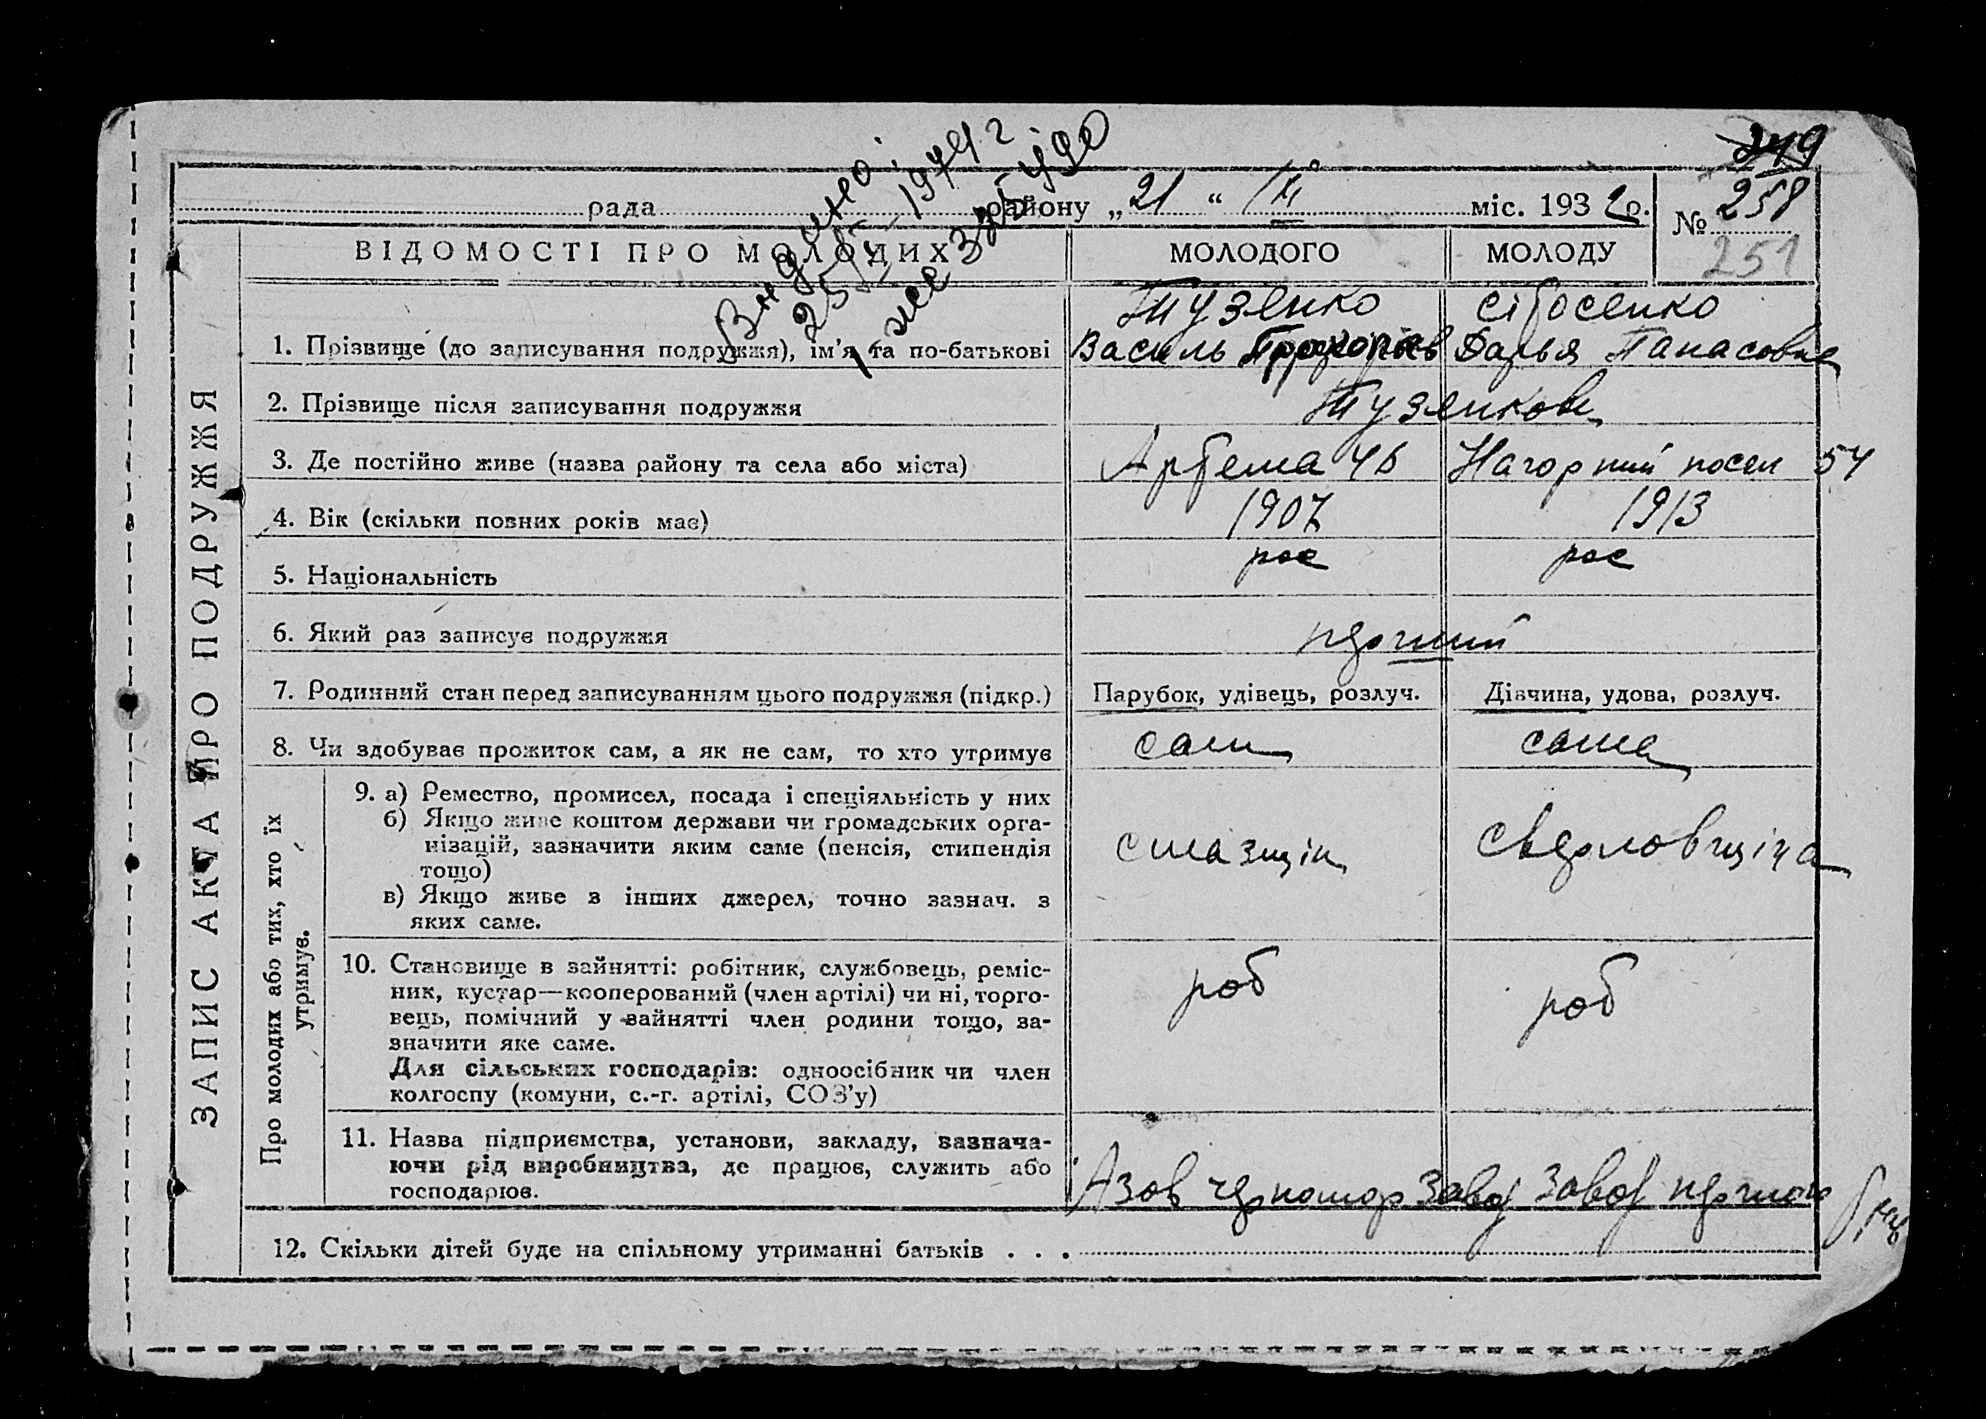 249
рада району „21“ III міс. 1932 р. № 258
251
ЗАПИС АКТА ПРО ПОДРУЖЖЯ
ВІДОМОСТІ ПРО МОЛОДИХ МОЛОДОГО МОЛОДУ
Тузенко
1. Прізвище (до записування подружжя), ім'я та по-батькові Василь Дарья Панасовна
2. Прізвище після записування подружжя Тузенкови
3. Де постійно живе (назва району та села або міста) Артема 46 Нагорний посел 54
4. Вік (скільки повних років має) 1907 1913
5. Національність рос рос
6. Який раз записує подружжя перший
7. Родинний стан перед записуванням цього подружжя (підкр.) Парубок, удівець, розлуч. Дівчина, удова, розлуч.
8. Чи здобуває прожиток сам, а як не сам, то хто утримує сам сама
Про молодих або тих, хто їх
утримує.
9. а) Ремество, промисел, посада і спеціяльність у них
б) Якщо живе коштом держави чи громадських орга-
нізацій, зазначити яким саме (пенсія, стипендія
тощо)
в) Якщо живе з інших джерел, точно зазнач. з
яких саме.
смазщік сверловщіца
10. Становище в зайнятті: робітник, службовець, реміс-
ник, кустар—кооперований (член артілі) чи ні, торго-
вець, помічний у зайнятті член родини тощо, за-
значити яке саме.
Для сільських господарів: одноосібник чи член
колгоспу (комуни, с.-г. артілі, СОЗ'у)
роб роб
11. Назва підприємства, установи, закладу, зазнача-
ючи рід виробництва, де працює, служить або
господарює.
Азов черномор завод завод
12. Скільки дітей буде на спільному утриманні батьків . . .